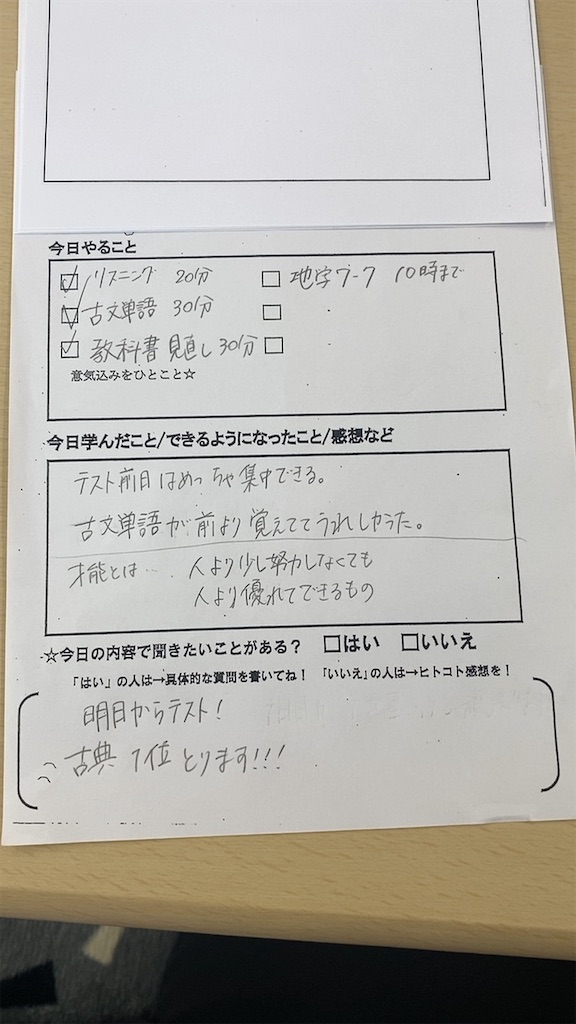 今日やること
☑リスニング 20分 □地学ワーク 10時まで
☑古文単語 30分 □
☑教科書見直し30分□
意気込みをひとこと☆
今日学んだこと/できるようになったこと/感想など
テスト前日はめっちゃ集中できる。
古文単語が前より覚えててうれしかった。
才能とは… 人より少し努力しなくても
人より優れてできるもの
☆今日の内容で聞きたいことがある? □はい □いいえ
「はい」の人は→具体的な質問を書いてね! 「いいえ」の人は→ヒトコト感想を!
明日からテスト!
古典 1位 とります!!!